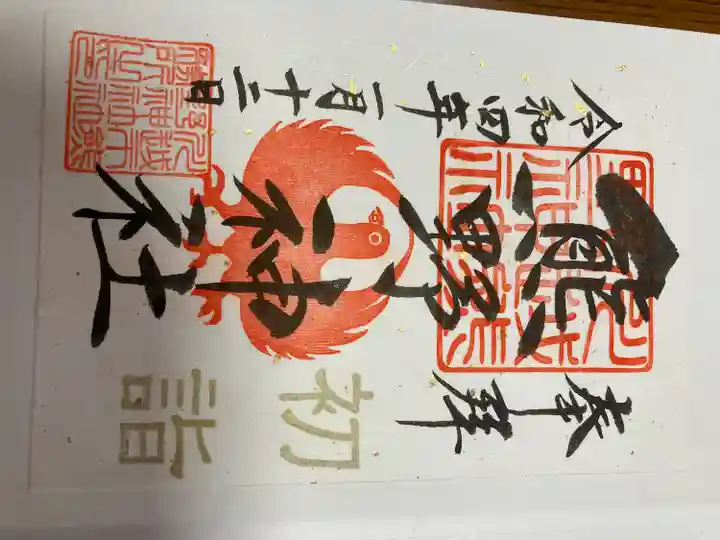 奉拝
熊野神社
令和四年一月十二日
初詣